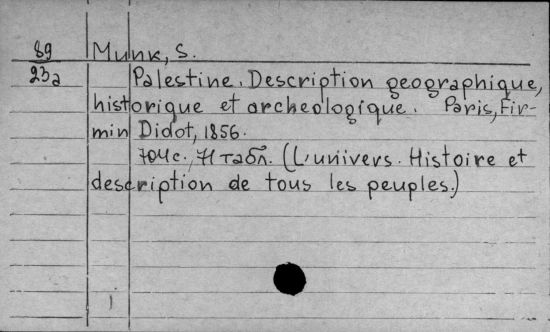 89 Munk, S.
23a Palestine. Description geographique,
historique et archeologique. Paris, Fir-
min Didot, 1856.
704c., 71 табл. (L'univers. Histoire et
description de tous les peuples.)